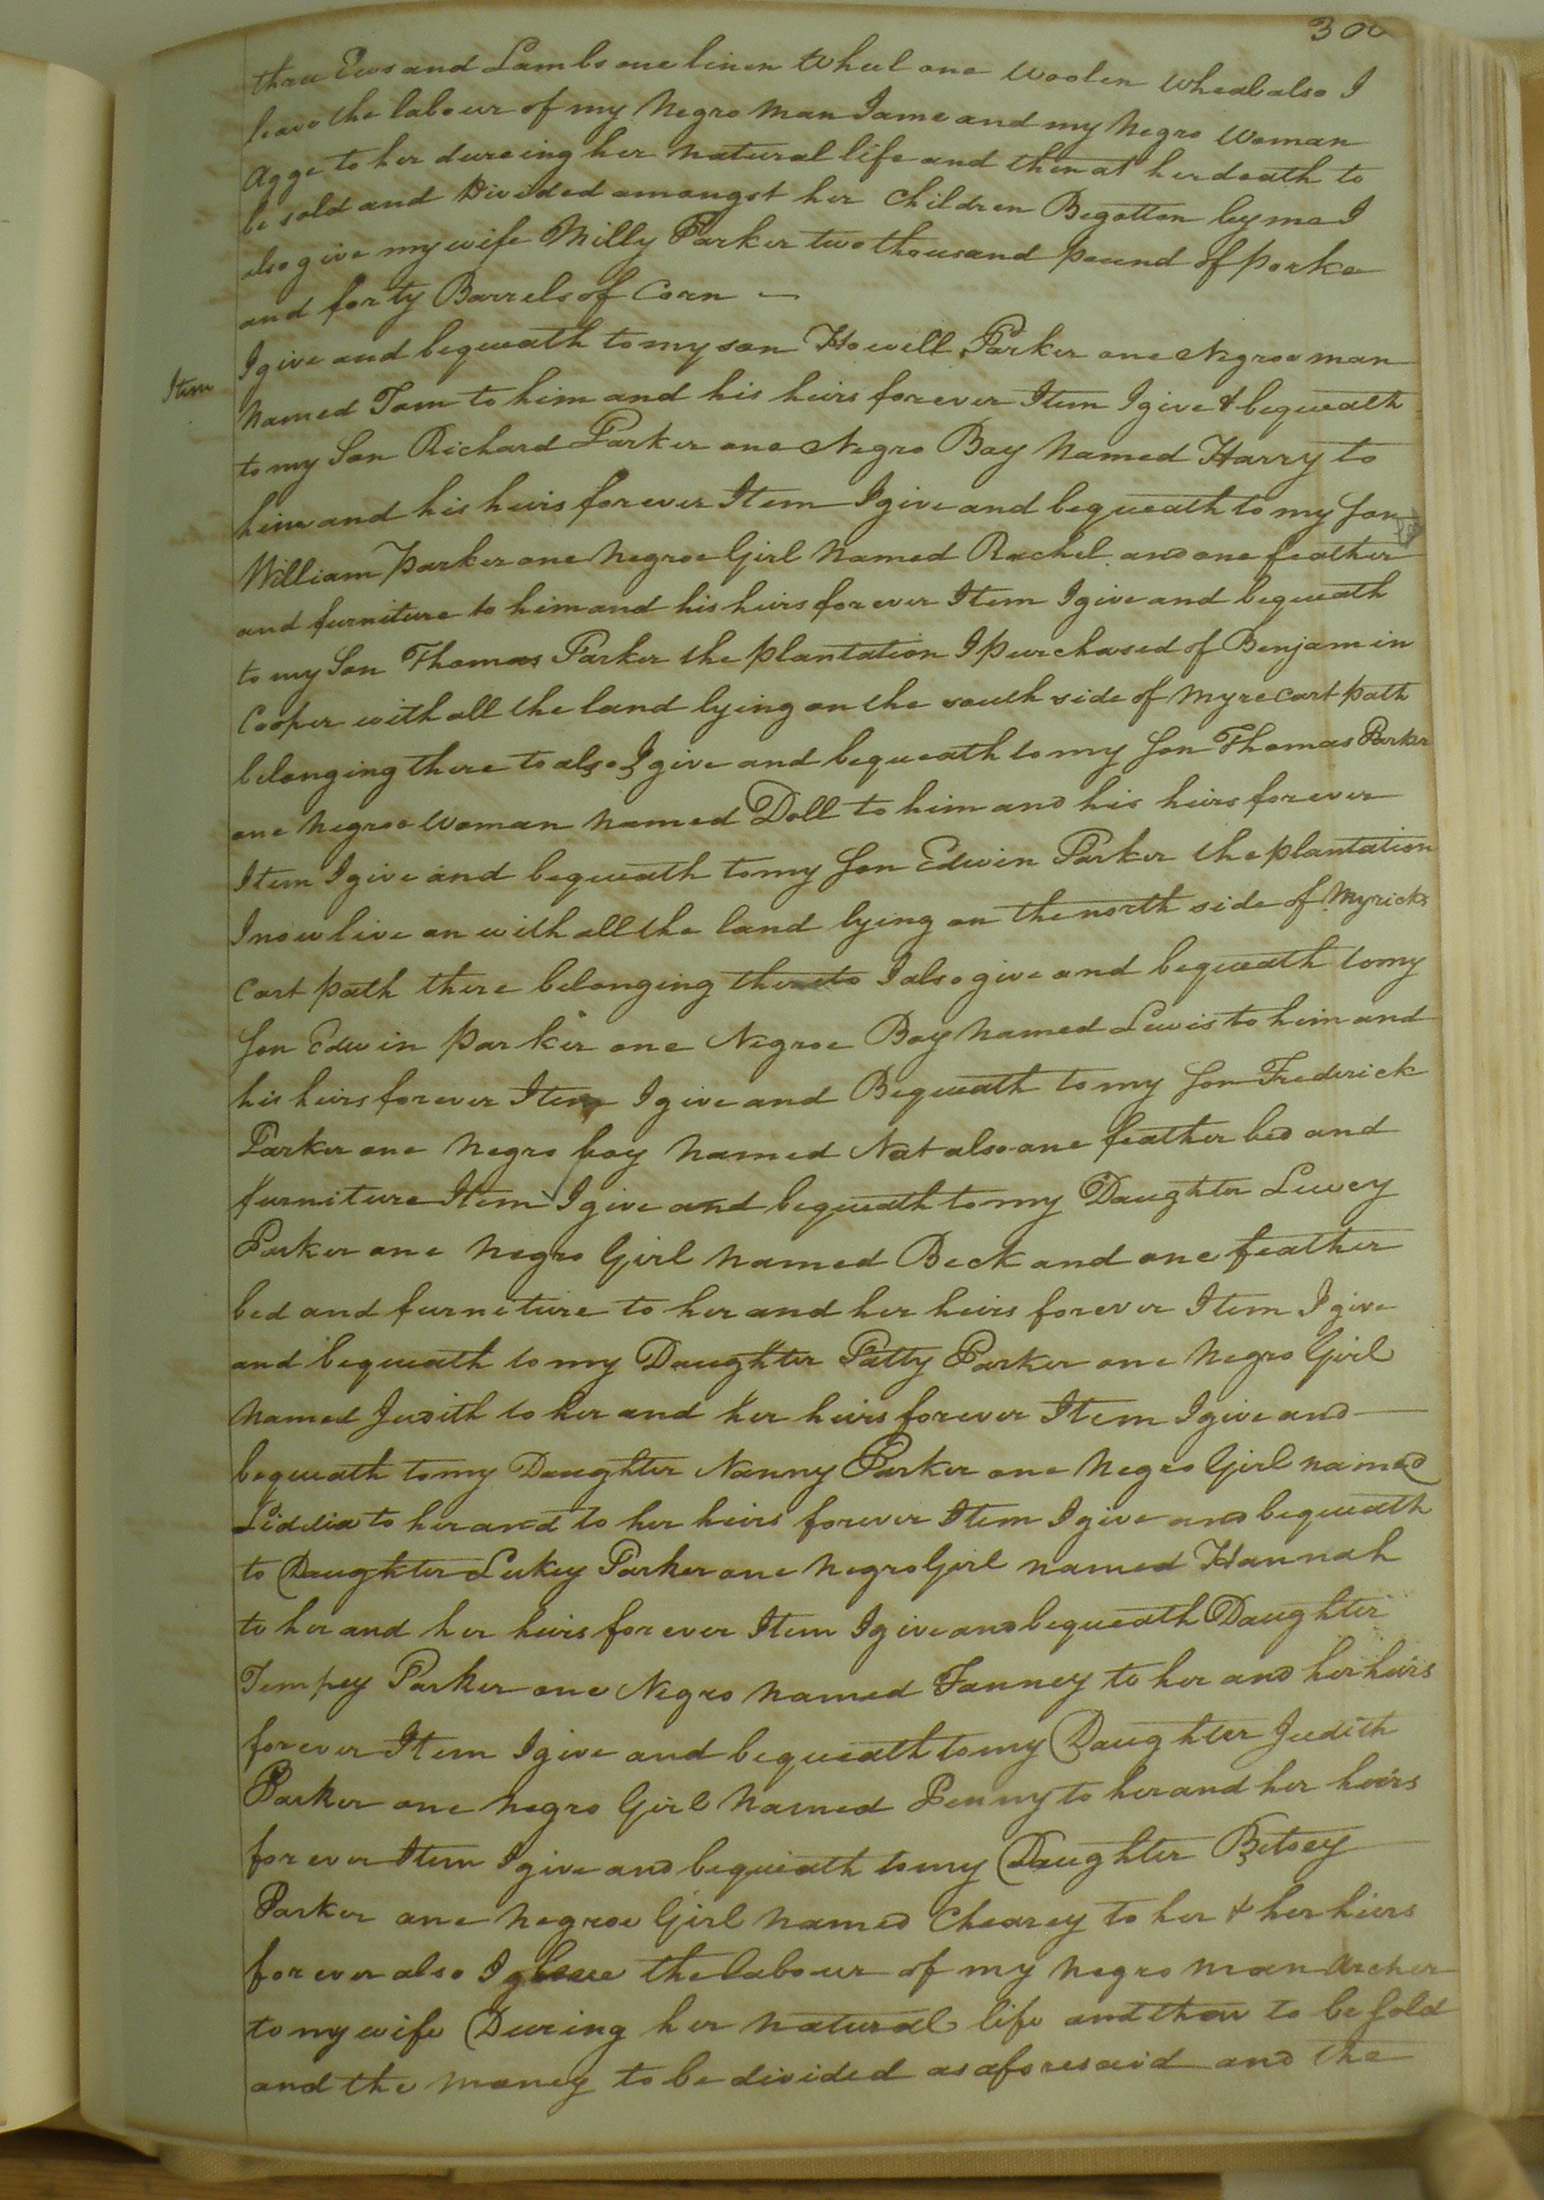 300
three Ews and Lambs one linen wheel one woolen wheal also I
leave the labour of my Negro man Jame and my Negro woman
Agge to her dureing her natural life and then at her death to
be sold and Divided amongst her Children Begotton by me I
also give my wife Milly Parker two thousand pound of porke
and forty Barrels of Corn —
Item I give and bequeath to my son Howell Parker one Negroe man
Named Tom to him and his heirs forever Item I give & bequeath
to my Son Richard Parker one Negro Boy Named Harry to
him and his heirs forever Item I give and bequeath to my Son
William Parker one Negroe Girl Named Rachel and one feather bed
and furniture to him and his heirs forever Item I give and bequeath
to my Son Thomas Parker the plantation I purchased of Benjamin
Cooper with all the land lying on the south side of Myre cart path
belonging there to also I give and bequeath to my Son Thomas Parker
one Negroe woman named Doll to him and his heirs forever
Item I give and bequeath to my Son Edwin Parker the plantation
I now live on with all the land lying on the north side of Myricks
Cart path there belonging thereto I also give and bequeath to my
Son Edwin Parker one Negroe Boy Named Lewis to him and
his heirs forever Item I give and Bequeath to my Son Frederick
Parker one Negro boy Named Nat also one feather bed and
furniture Item I give and bequeath to my Daughter Luvey
Parker one Negro Girl Named Beck and one feather
bed and furniture to her and her heirs forever Item I give
and bequeath to my Daughter Patty Parker one Negro Girl
Named Judith to her and her heirs forever Item I give and
bequeath to my Daughter Nanny Parker one Negro Girl named
Liddia to her and to her heirs forever Item I give and bequeath
to Daughter Lukey Parker one Negro Girl named Hannah
to her and her heirs forever Item I give and bequeath Daughter
Tempey Parker one Negro Named Fanney to her and her heirs
forever Item I give and bequeath to my Daughter Judith
Parker one Negro Girl Named Penny to her and her heirs
forever Item I give and bequeath to my Daughter Betsey
Parker one Negroe Girl Named Chearey to her & her heirs
forever also I leave the labour of my Negro man Archer
to my wife During her Natural life and then to be Sold
and the money to be divided as aforesaid and the